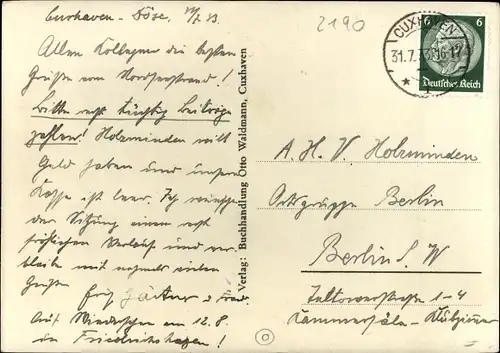 Cuxhaven - Döse, 31/7. 33.
Allen Kollegen die besten
Grüsse vom Nordseestrand!
Bitte recht tüchtig Beiträge
zahlen! Holzminden will
Geld haben und unsere
Kasse ist leer. Ich wünsche
der Sitzung einen recht
fröhlichen Verlauf und ver-
bleibe mit nochmals vielen
Grüßen
Fritz Gärtner u. Frau.
Auf Wiedersehen am 12.8.
in Friedrichshagen!
Verlag: Buchhandlung Otto Waldmann, Cuxhaven
2190
CUXHAVEN
31.7.33.16-17
6 6
Deutsches Reich
A. H. V. Holzminden
Ortsgruppe Berlin
Berlin S.W
Teltowerstraße 1-4
Kammersäle - Klubzimmer